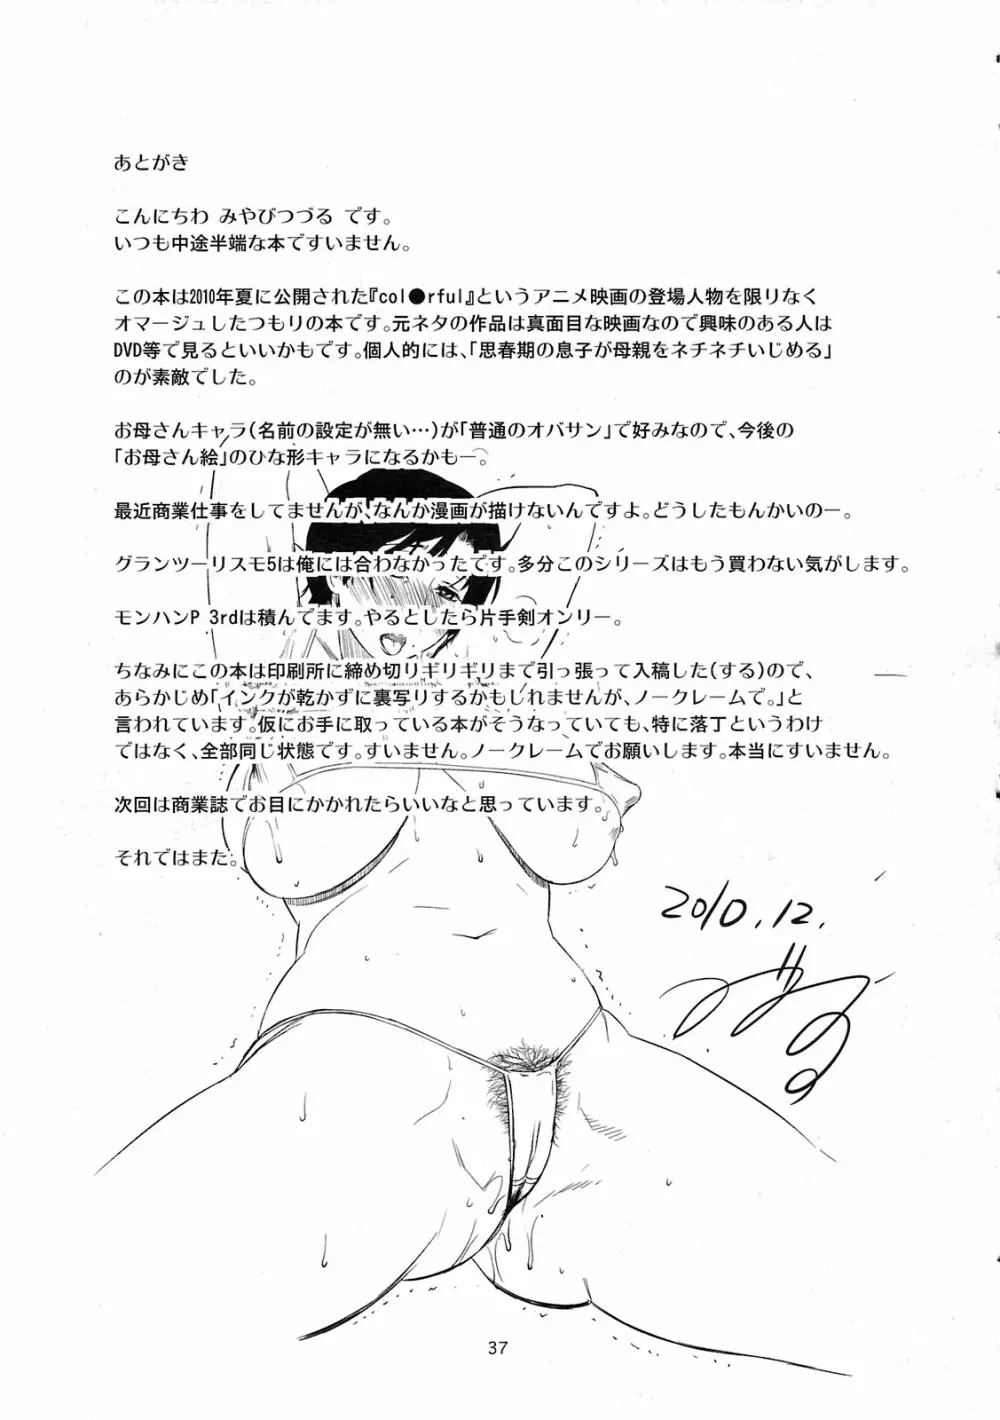 あとがき
こんにちわ みやびつづる です。
いつも中途半端な本ですいません。
この本は2010年夏に公開された『col●rful』というアニメ映画の登場人物を限りなく
オマージュしたつもりの本です。元ネタの作品は真面目な映画なので興味のある人は
DVD等で見るといいかもです。個人的には、「思春期の息子が母親をネチネチいじめる」
のが素敵でした。
お母さんキャラ(名前の設定が無い…)が「普通のオバサン」で好みなので、今後の
「お母さん絵」のひな形キャラになるかもー。
最近商業仕事をしてませんが、なんか漫画が描けないんですよ。どうしたもんかいのー。
グランツーリスモ5は俺には合わなかったです。多分このシリーズはもう買わない気がします。
モンハンP 3rdは積んでます。やるとしたら片手剣オンリー。
ちなみにこの本は印刷所に締め切りギリギリまで引っ張って入稿した(する)ので、
あらかじめ「インクが乾かずに裏写りするかもしれませんが、ノークレームで。」と
言われています。仮にお手に取っている本がそうなっていても、特に落丁というわけ
ではなく、全部同じ状態です。すいません。ノークレームでお願いします。本当にすいません。
次回は商業誌でお目にかかれたらいいなと思っています。
それではまた。
2010.12.
37